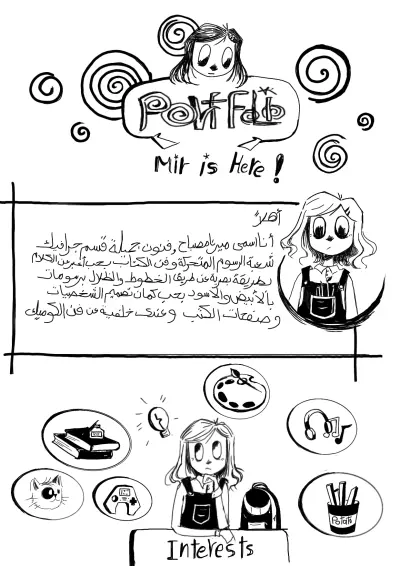 PortFolio
Mir is Here!
أهلاً
أنا اسمى ميرنا مصباح، فنون جميلة قسم جرافيك
شعبة الرسوم المتحركة وفن الكتاب بحب أعبر عن الكلام
بطريقة بصرية عن طريق الخطوط والظلال برسومات
بالأبيض والأسود بحب كمان تصميم الشخصيات
وصفحات الكتب وعندى خلفية عن فن الكوميك
Potato
Interests